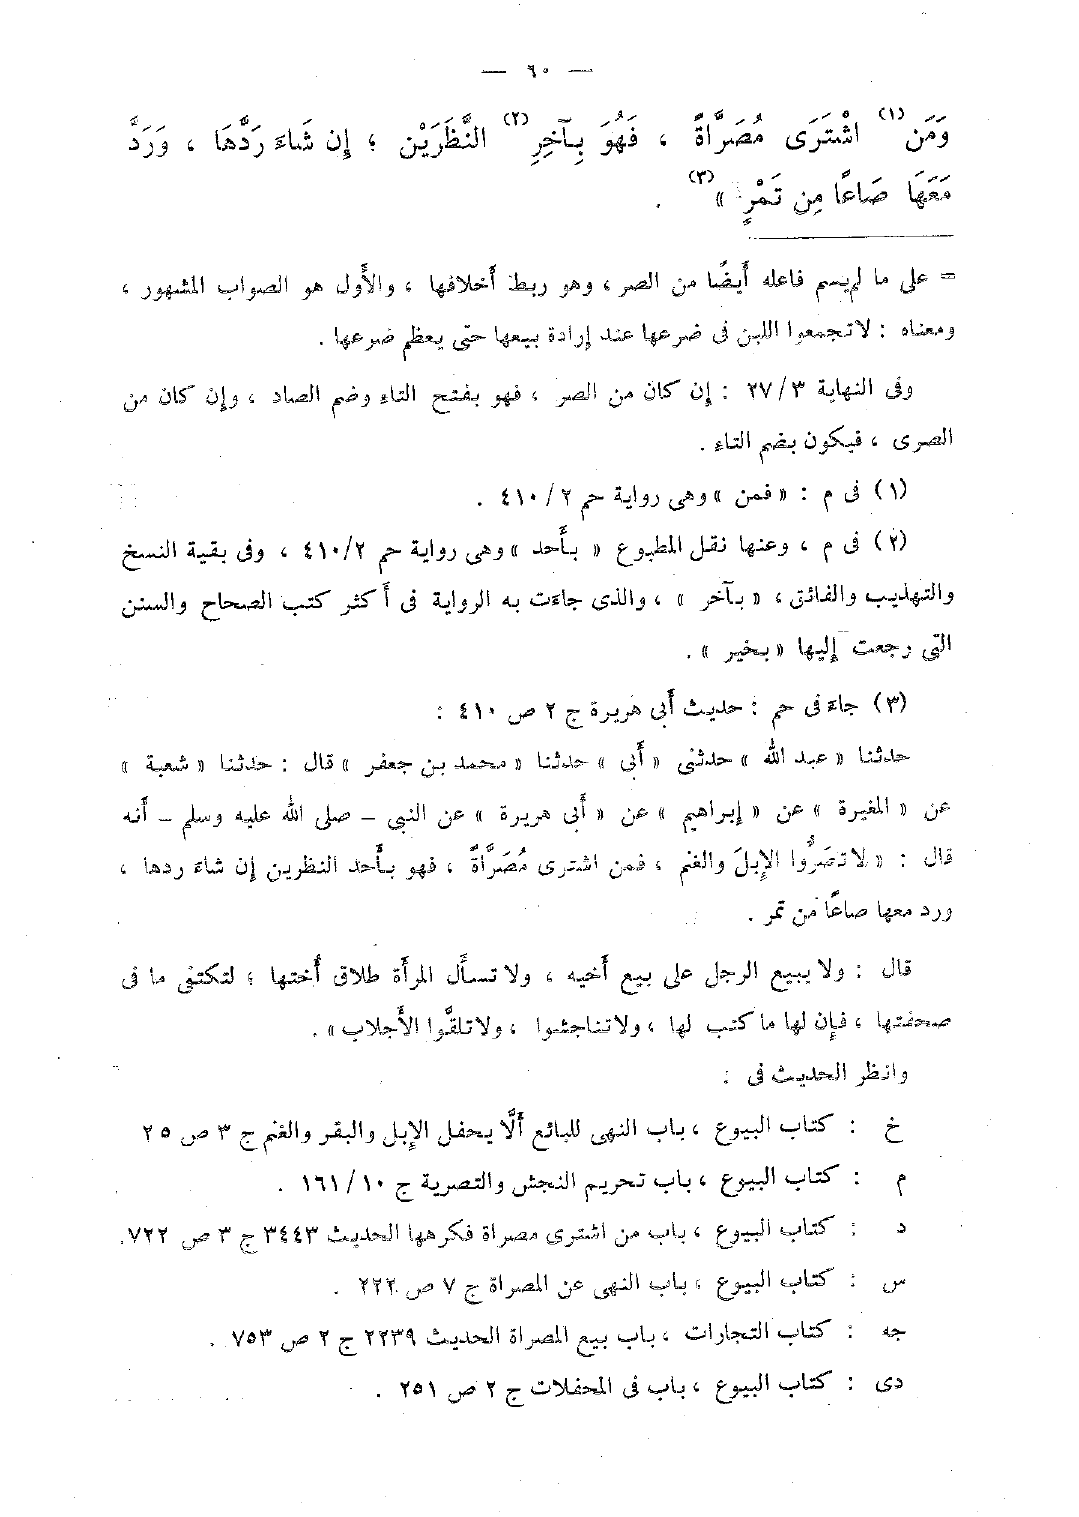 — ٦٠ —
وَمَن (١) اشْتَرَى مُصَرَّاةً ، فَهُوَ بِآخِرِ (٢) النَّظَرَيْنِ ؛ إِن شَاءَ رَدَّهَا ، وَرَدَّ
مَعَهَا صَاعًا مِن تَمْرٍ » (٣) .
= على ما لم يسم فاعله أيضًا من الصر ، وهو ربط أخلافها ، والأول هو الصواب المشهور ،
ومعناه : لا تجمعوا اللبن فى ضرعها عند إرادة بيعها حتى يعظم ضرعها .
وفى النهاية ٣/ ٢٧ : إن كان من الصر ، فهو بفتح التاء وضم الصاد ، وإن كان من
الصرى ، فيكون بضم التاء .
(١) فى م : « فمن » وهى رواية حم ٢/ ٤١٠ .
(٢) فى م ، وعنها نقل المطبوع « بأَحد » وهى رواية حم ٤١٠/٢ ، وفى بقية النسخ
والتهذيب والفائق ، « بآخر » ، والذى جاءت به الرواية فى أكثر كتب الصحاح والسنن
التى رجعت إليها « بخير » .
(٣) جاء فى حم : حديث أبى هريرة ج ٢ ص ٤١٠ :
حدثنا « عبد الله » حدثنى « أبى » حدثنا « محمد بن جعفر » قال : حدثنا « شعبة »
عن « المغيرة » عن « إبراهيم » عن « أبى هريرة » عن النبي – صلى الله عليه وسلم – أنه
قال : « لا تصَرُّوا الإبلَ والغنم ، فمن اشترى مُصَرَّاةً ، فهو بأَحد النظرين إن شاء ردها ،
ورد معها صاعًا من تمر .
قال : ولا يبيع الرجل على بيع أخيه ، ولا تسأل المرأة طلاق أُختها ؛ لتكتفى ما فى
صحفتها ، فإن لها ما كتب لها ، ولا تناجشوا ، ولا تلقَّوا الأَجلاب » .
وانظر الحديث فى :
خ : كتاب البيوع ، باب النهى للبائع ألَّا يحفل الإبل والبقر والغنم ج ٣ ص ٢٥
م : كتاب البيوع ، باب تحريم النجش والتصرية ج ١٠/ ١٦١ .
د : كتاب البيوع ، باب من اشترى مصراة فكرهها الحديث ٣٤٤٣ ج ٣ ص ٧٢٢ .
س : كتاب البيوع ، باب النهى عن المصراة ج ٧ ص ٢٢٢ .
جه : كتاب التجارات ، باب بيع المصراة الحديث ٢٢٣٩ ج ٢ ص ٧٥٣ .
دى : كتاب البيوع ، باب فى المحفلات ج ٢ ص ٢٥١ .